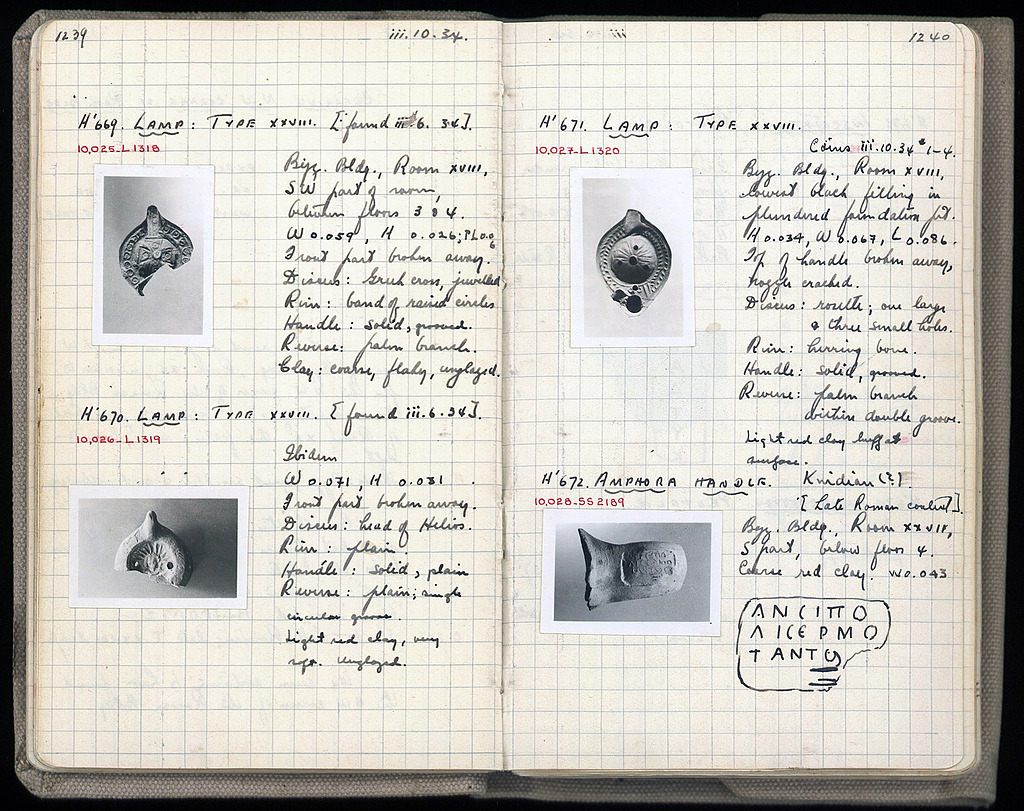 1239
iii.10.34.
H'669. LAMP: TYPE XXVIII. [found iii.6.34].
10,025-L1318
Byz. Bldg., Room XVIII,
SW part of room
between floors 3 & 4.
W 0.059, H 0.026; PL 0.0
6
Front part broken away.
Discus: Greek cross, jewelled
Rim: band of raised circles
Handle: solid, grooved.
Reverse: palm branch.
Clay: coarse, flaky, unglazed.
H'670. LAMP: TYPE XXVIII. [found iii.6.34].
10,026-L1319
Ibidem
W 0.071, H 0.031
Front part broken away.
Discus: head of Helios.
Rim: plain.
Handle: solid, plain
Reverse: plain; single
circular groove.
Light red clay, very
soft. Unglazed.
1240
H'671. LAMP: TYPE XXVIII.
10,027-L1320
Coins iii.10.34 #1-4.
Byz. Bldg., Room XVIII,
lowest black filling in
plundered foundation pit.
H 0.034, W 0.067, L 0.086.
Top of handle broken away,
nozzle cracked.
Discus: rosette; one large
& three small holes.
Rim: herring bone.
Handle: solid, grooved.
Reverse: palm branch
within double groove.
Light red clay buff at
surface.
H'672. AMPHORA HANDLE. Knidian (?)
10,028-SS2189
[Late Roman context].
Byz. Bldg., Room XXVII,
S part, below floor 4.
Coarse red clay. W 0.043
ΛNCIΠO
ΛICEPMO
TANTO